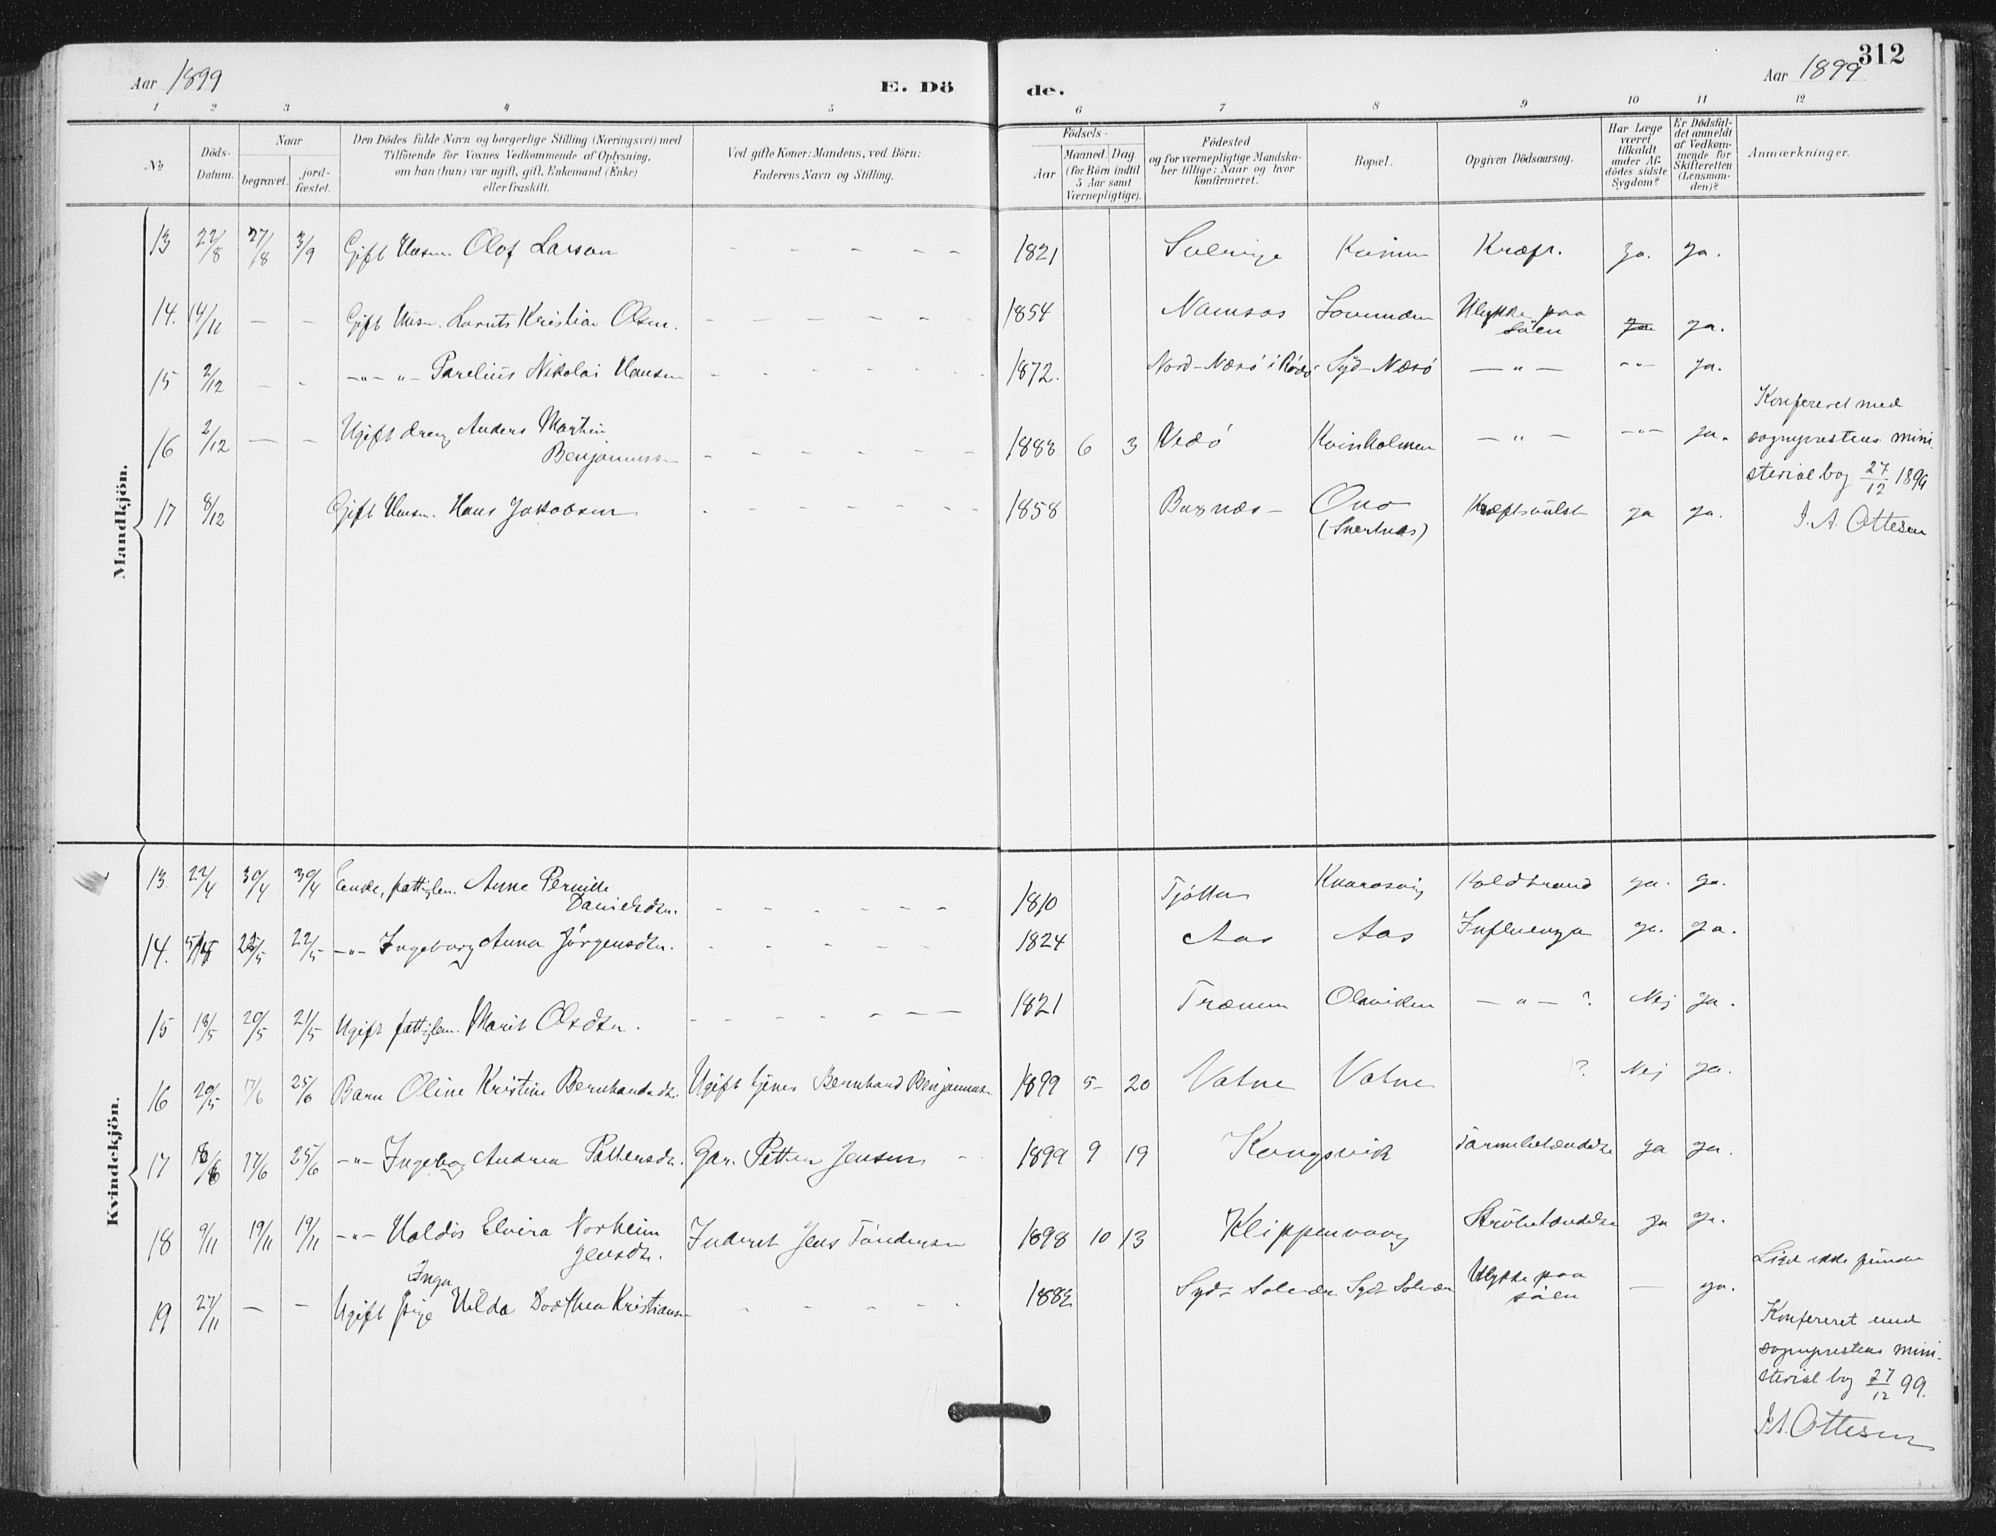 312
Aar 1899
E. Dö
de.
Aar 1899
1 2 3 4 5 6 7 8 9 10 11 12
No
Döds-
Datum.
Naar
begravet.
jord-
fæstet.
Den Dödes fulde Navn og borgerlige Stilling (Næringsvei) med
Tilföiende for Voxnes Vedkommende af Oplysning,
om han (hun) var ugift, gift, Enkemand (Enke)
eller fraskilt.
Ved gifte Koner: Mandens, ved Börn:
Faderens Navn og Stilling.
Födsels-
Aar
Maaned. Dag
(for Börn indtil
5 Aar samt
Værnepligtige).
Födested
og for værnepligtige Mandska-
ber tillige: Naar og hvor
konfirmeret.
Bopæl.
Opgiven Dödsaarsag.
Har Læge
været
tilkaldt
under Af-
dödes sidste
Sygdom?
Er Dödsfal-
det anmeldt
af Vedkom-
mende for
Skifteretten
(Lensman-
den)?
Anmærkninger.
Mandkjön.
13 22/8 27/8 3/9 Gift Husm. Olof Larson - - - - 1821 Kræft. ja. ja.
14. 14/11 - - Gift Husm. Kristian Olsen. - - - - 1854 Namsos Lovunden Ulykke paa
söen ja ja.
15 2/12 - - -"- " Parelius Nikolai Hansen - - - - 1872. Nord-Næsö i Rödö Syd-Næsö - " - -"- ja.
16 2/12 - - Ugift dreng Anders Martin
Benjaminsen - - - - 1883 6 3 Kvinholmen - " - -"- ja.
Konfereret med
sogneprestens mini-
sterialbog 27/12 1899
J. A. Ottesen
17 8/12 Gift Husm. Hans Jakobsen - - - - 1858 Buxnæs - Onö
(Svertnæs) Kræftsvulst ja ja.
Kvindekjön.
13. 22/4 30/4 30/4 Enke, fattiglem. Anne Pernille
Danielsdtr. - - - - 1810 Tjötta Kvarosvig Koldbrand ja. ja.
14. 22/5 22/5 -"- Ingeborg Anna Jörgensdtr. - - - - 1824 Aas Aas Influenza ja. ja.
15 18/5 20/5 21/5 Ugift fattiglem. Marit Olsdtr. - - - - 1821 Trænen Olaviken - " - ? Nej ja.
16 20/5 17/6 25/6 Barn Oline Kristine Bernhardsdtr. Ugift tjener Bernhard Benjaminsen 1899 5 - 20 Vatne Vatne ? Nej ja.
17 17/6 25/6 -"- Ingeborg Andrea Pettersdtr. Gar. Petter Jensen - 1899 9 19 Kongsvik Tarmbetændelse ja ja.
18 9/11 19/11 19/11 -"- Haldis Elvira Norheim
Jensdtr. Inderst Jens Töndersen 1898 10 13 Klippenvaag Strubetændelse ja ja.
19 27/11 - - Ugift pige Inga Hilda Dorthea Kristiansen - - - - 1882 Syd-Solvær Syd Solvær Ulykke paa
söen - ja.
Liget ikke funden
Konfereret med
sogneprestens mini-
sterialbog 27/12 99.
J.A. Ottesen